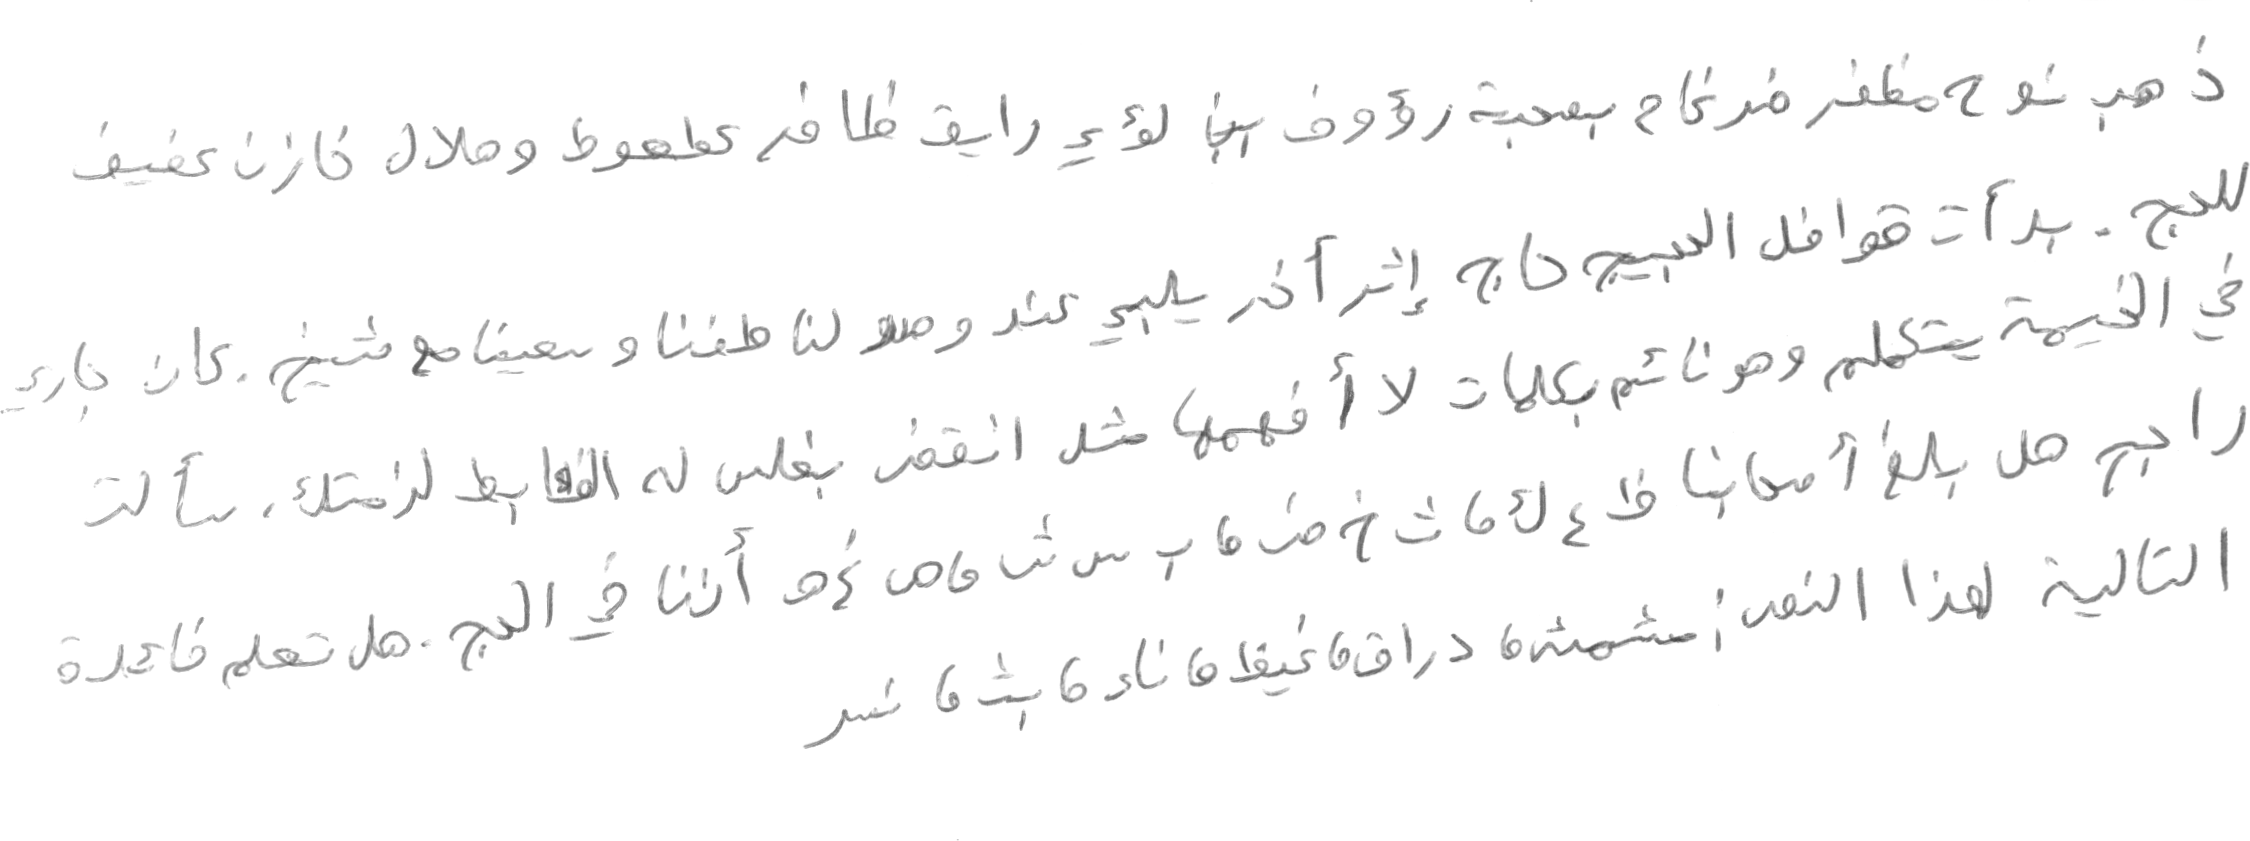 ذهب نوح مظفر ضرغام بصحبة رؤوف ببغا لؤي رايق ظافر عطعوط وهلال خازن عفيف
للحج . بدأت قوافل الحجيج حاج إثر آخر يلبي عند وصولنا طفنا وسعينا مع شيخ . كان جاري
في الخيمة يتكلم وهو نائم بكلمات لا أفهمها مثل انقض بغلس له الضابط لزمتك . سألت
راجح هل بلغ أصحابنا ظ ع لئ ث خ ض ب س ش ص غ هـ أننا في الحج . هل تعلم قاعدة
التالية لهذا النص : مشمش دراق غيظ ناء بث نسر